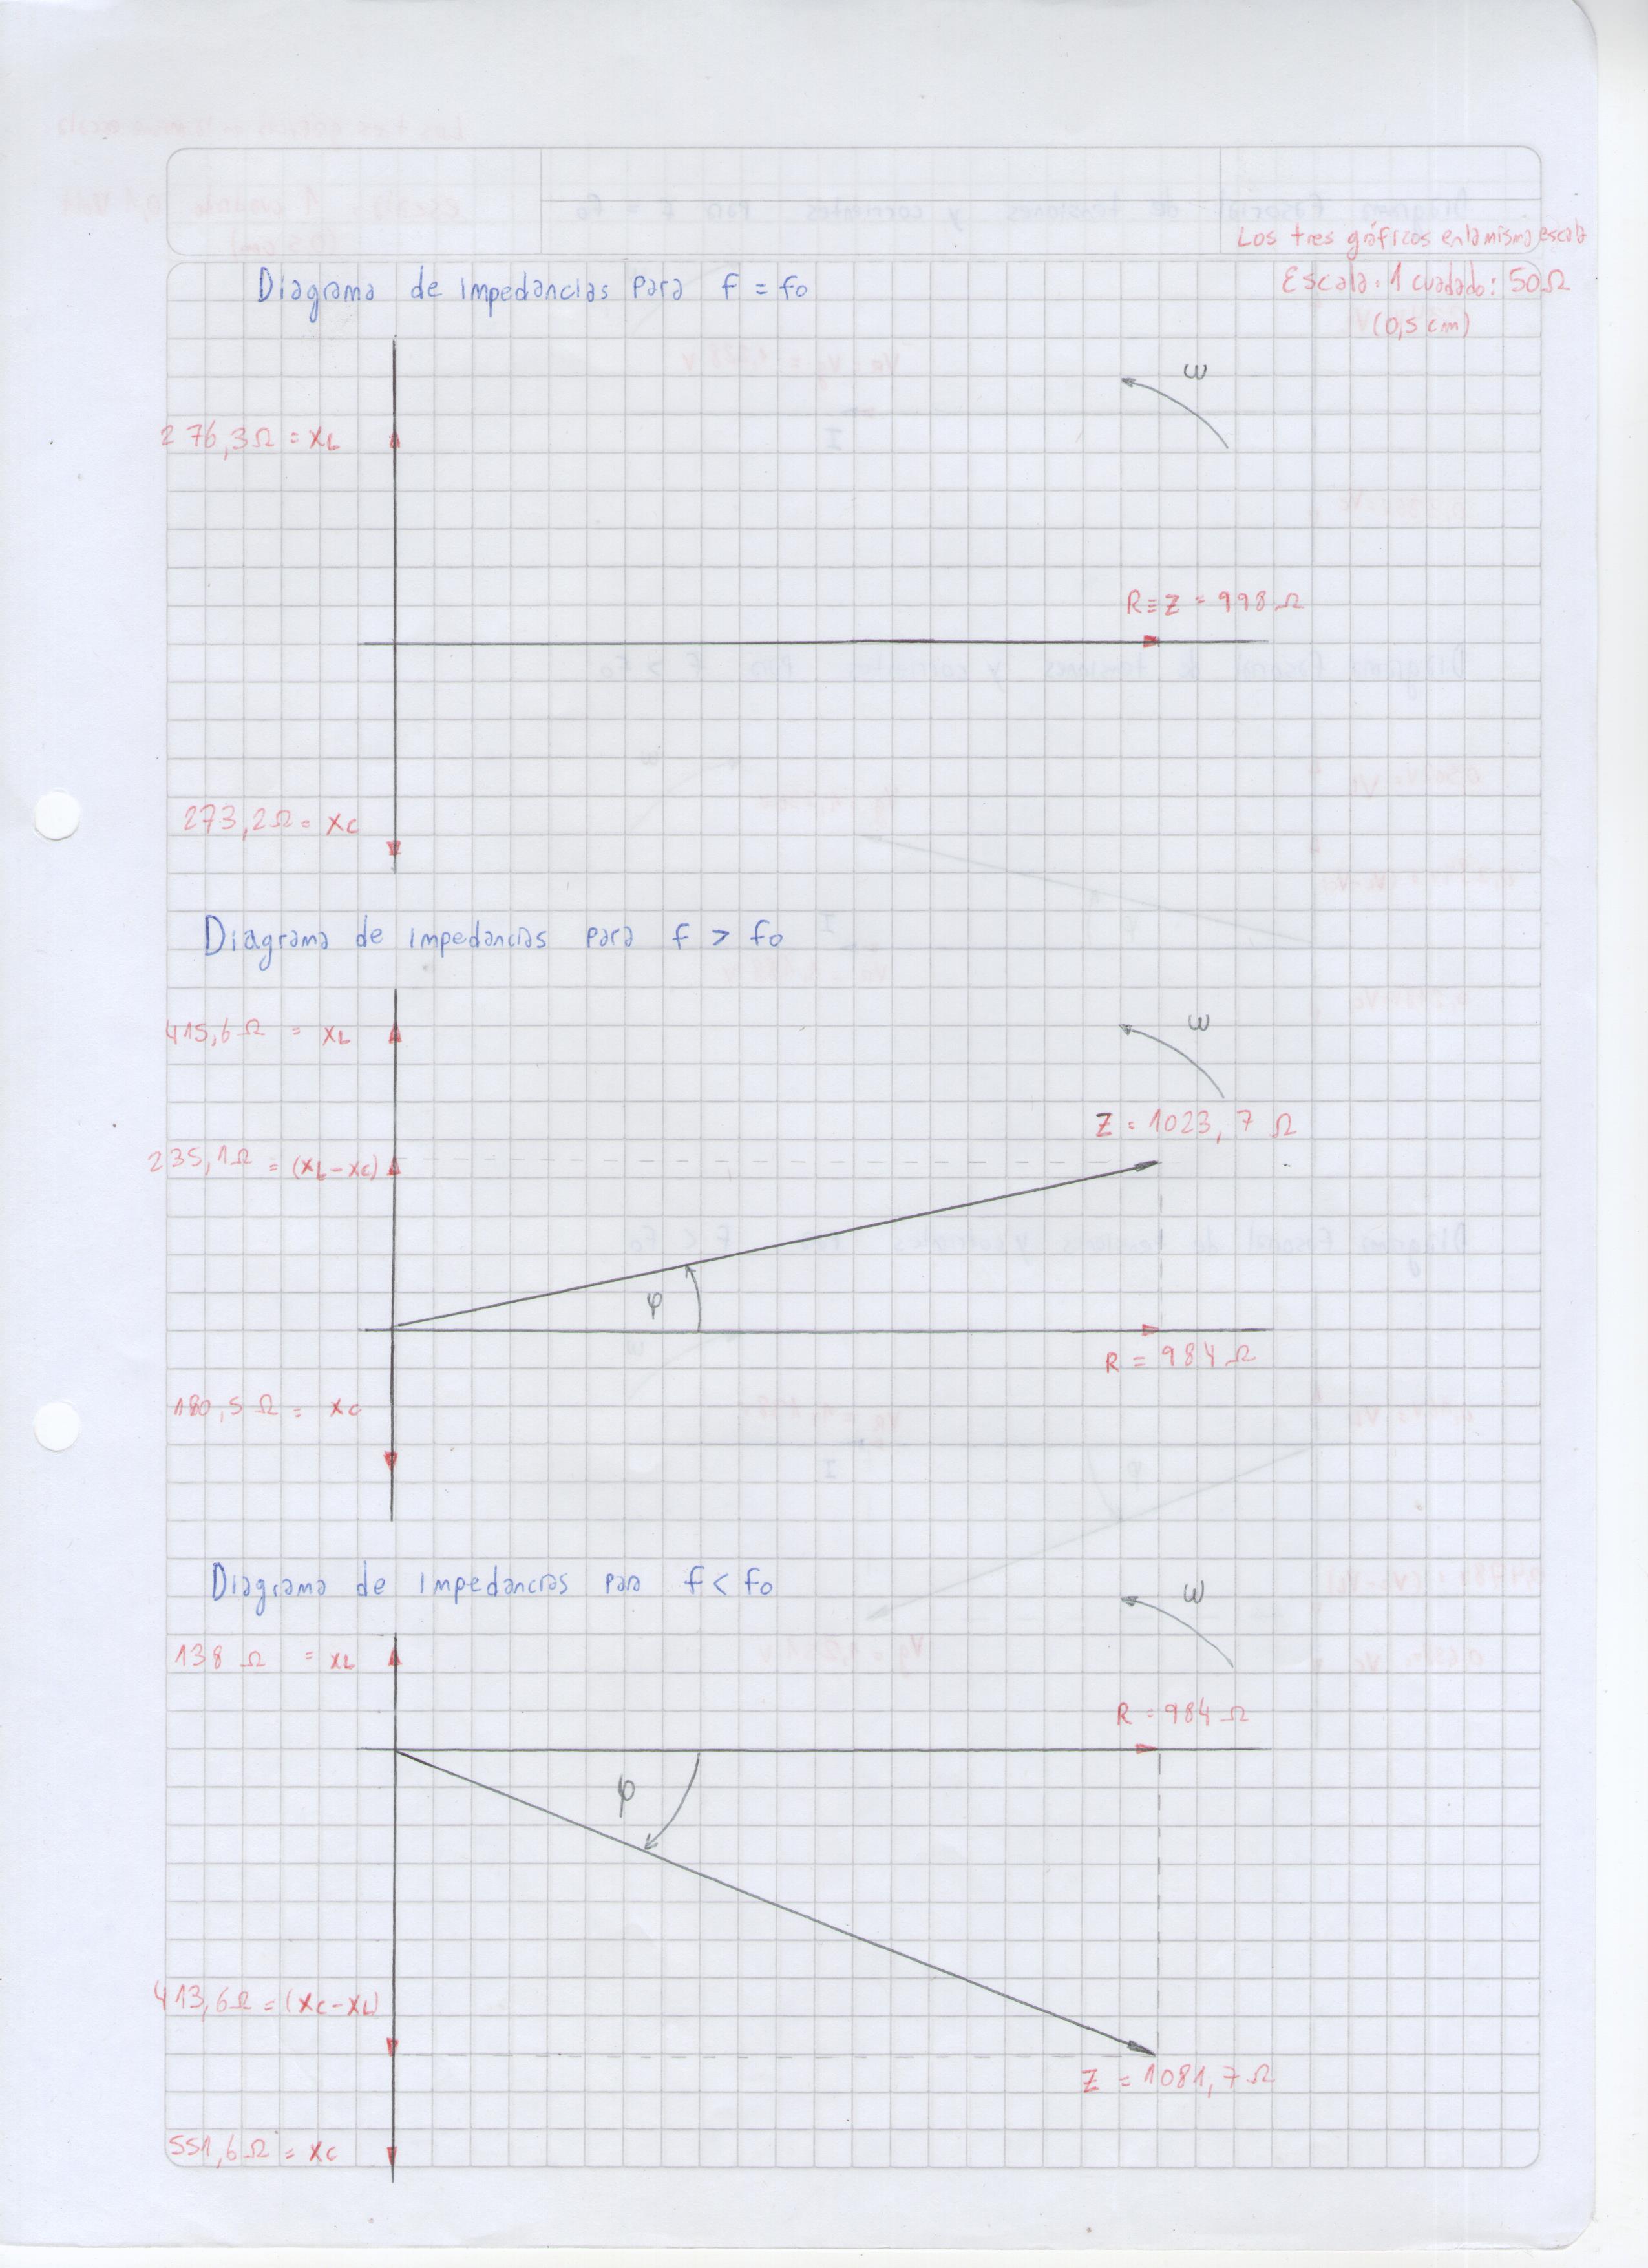 Los tres gráficos en la misma escala
Diagrama de impedancias para f = fo
Escala: 1 cuadado: 50 Ω
(0,5 cm)
ω
276,3 Ω = XL
R ≡ Z = 998 Ω
273,2 Ω = XC
Diagrama de impedancias para f > fo
415,6 Ω = XL
ω
Z = 1023,7 Ω
235,1 Ω = (XL-XC)
φ
R = 984 Ω
180,5 Ω = XC
Diagrama de impedancias para f < fo
ω
138 Ω = XL
R = 984 Ω
φ
413,6 Ω = (XC-XL)
Z = 1081,7 Ω
551,6 Ω = XC